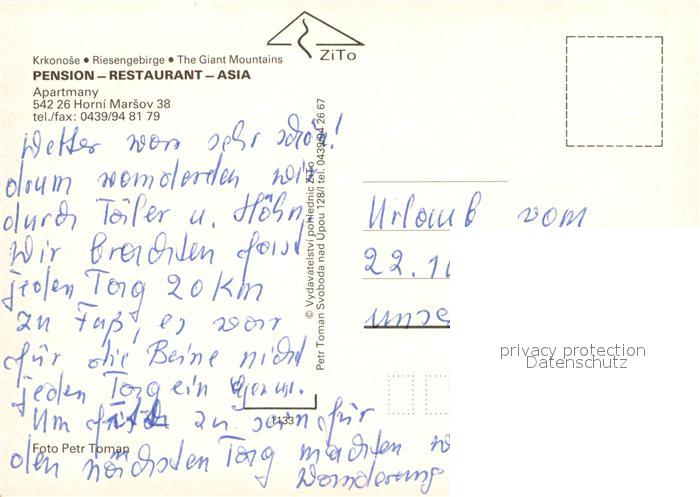 ZiTo
Krkonoše • Riesengebirge • The Giant Mountains
PENSION – RESTAURANT – ASIA
Apartmany
542 26 Horní Maršov 38
tel./fax: 0439/94 81 79
Wetter war sehr schön!
drum wanderten wir
durch Täler u. Höhn,
Wir brachten fast
jeden Tag 20 Km
zu Fuß, es war
für die Beine nicht
jeden Tag ein Genuss.
Um fit zu sein für
den nächsten Tag machten w
Wanderung
© Vydavatelství pohlednic ZiTo
Petr Toman Svoboda nad Úpou 128/I tel. 0439/94 26 67
1133
Foto Petr Toman
Urlaub vom
22.10
unse
privacy protection
Datenschutz